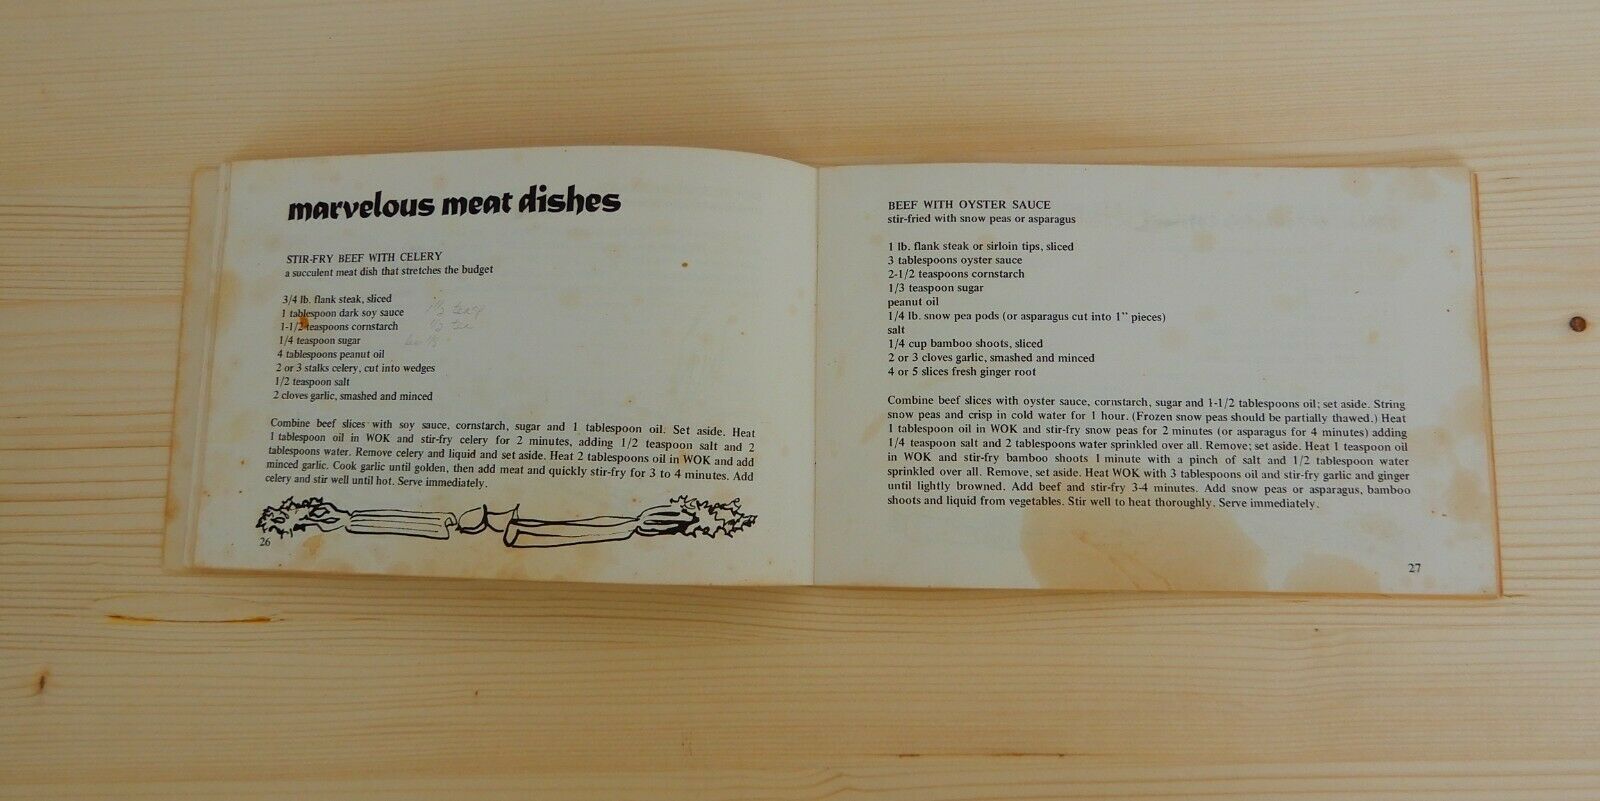 marvelous meat dishes
STIR-FRY BEEF WITH CELERY
a succulent meat dish that stretches the budget
3/4 lb. flank steak, sliced
1 tablespoon dark soy sauce
1-1/2 teaspoons cornstarch
1/4 teaspoon sugar
4 tablespoons peanut oil
2 or 3 stalks celery, cut into wedges
1/2 teaspoon salt
2 cloves garlic, smashed and minced
Combine beef slices with soy sauce, cornstarch, sugar and 1 tablespoon oil. Set aside. Heat
1 tablespoon oil in WOK and stir-fry celery for 2 minutes, adding 1/2 teaspoon salt and 2
tablespoons water. Remove celery and liquid and set aside. Heat 2 tablespoons oil in WOK and add
minced garlic. Cook garlic until golden, then add meat and quickly stir-fry for 3 to 4 minutes. Add
celery and stir well until hot. Serve immediately.
26
BEEF WITH OYSTER SAUCE
stir-fried with snow peas or asparagus
1 lb. flank steak or sirloin tips, sliced
3 tablespoons oyster sauce
2-1/2 teaspoons cornstarch
1/3 teaspoon sugar
peanut oil
1/4 lb. snow pea pods (or asparagus cut into 1" pieces)
salt
1/4 cup bamboo shoots, sliced
2 or 3 cloves garlic, smashed and minced
4 or 5 slices fresh ginger root
Combine beef slices with oyster sauce, cornstarch, sugar and 1-1/2 tablespoons oil; set aside. String
snow peas and crisp in cold water for 1 hour. (Frozen snow peas should be partially thawed.) Heat
1 tablespoon oil in WOK and stir-fry snow peas for 2 minutes (or asparagus for 4 minutes) adding
1/4 teaspoon salt and 2 tablespoons water sprinkled over all. Remove; set aside. Heat 1 teaspoon oil
in WOK and stir-fry bamboo shoots 1 minute with a pinch of salt and 1/2 tablespoon water
sprinkled over all. Remove, set aside. Heat WOK with 3 tablespoons oil and stir-fry garlic and ginger
until lightly browned. Add beef and stir-fry 3-4 minutes. Add snow peas or asparagus, bamboo
shoots and liquid from vegetables. Stir well to heat thoroughly. Serve immediately.
27